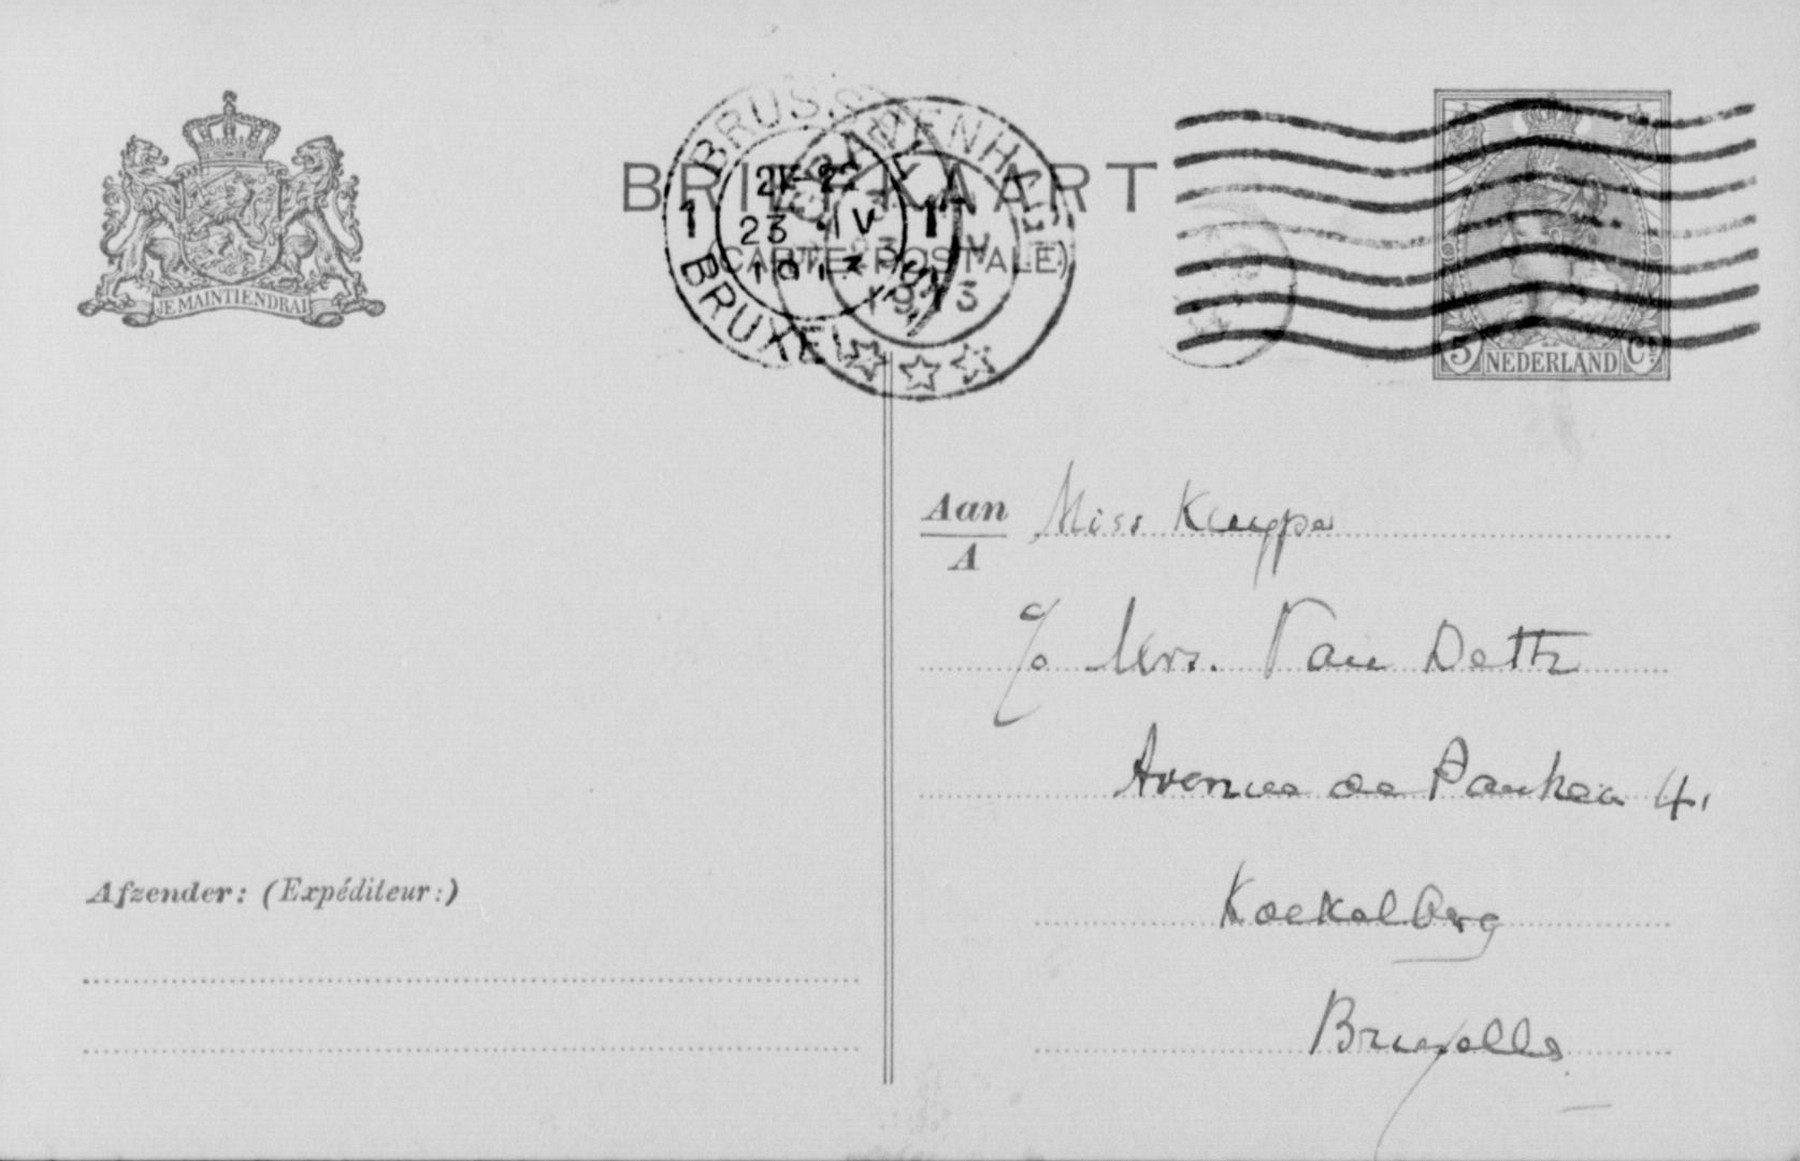 JE MAINTIENDRAI
BRIEFKAART
(CARTE POSTALE)
BRUSSEL
1 21-22 1
23 IV
1913
BRUXELLES
'S GRAVENHAGE
1913
5 NEDERLAND Ct
Aan
A
Miss Kuyper
c/o Mrs. Van Deth
Avenue de 4,
Koekelberg
Bruxelles
Afzender: (Expéditeur:)